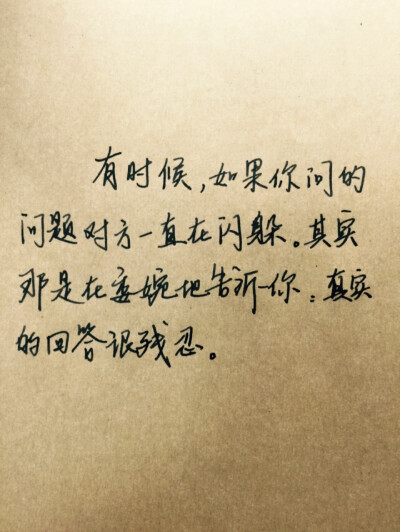 有时候,如果你问的
问题对方一直在闪躲。其实
那是在委婉地告诉你:真实
的回答很残忍。